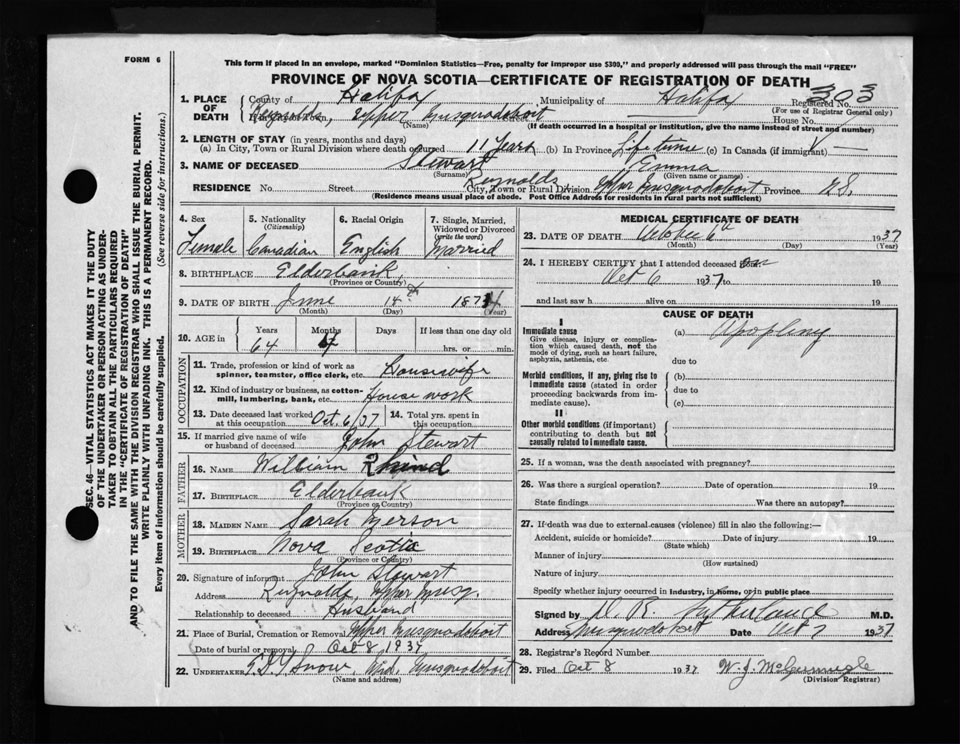 FORM 6
This form if placed in an envelope, marked "Dominion Statistics—Free, penalty for improper use $300," and properly addressed will pass through the mail "FREE"
PROVINCE OF NOVA SCOTIA—CERTIFICATE OF REGISTRATION OF DEATH
303
1. PLACE OF DEATH County of Halifax Municipality of Halifax Registered No.
(For use of Registrar General only)
Reynolds, Upper Musquodoboit House No.
(Name) (If death occurred in a hospital or institution, give the name instead of street and number)
2. LENGTH OF STAY (in years, months and days)
(a) In City, Town or Rural Division where death occurred 11 Years (b) In Province Lifetime (c) In Canada (if immigrant) —
3. NAME OF DECEASED Stewart Emma
(Surname) (Given name or names)
RESIDENCE No. Street Reynolds City, Town or Rural Division Upper Musquodoboit Province N.S.
(Residence means usual place of abode. Post Office Address for residents in rural parts not sufficient)
4. Sex Female
5. Nationality (Citizenship) Canadian
6. Racial Origin English
7. Single, Married, Widowed or Divorced (write the word) Married
8. BIRTHPLACE Elderbank,
(Province or Country)
9. DATE OF BIRTH June 14th 187
(Month) (Day) (Year)
10. AGE in Years Months Days If less than one day old
64 hrs. or min.
OCCUPATION
11. Trade, profession or kind of work as spinner, teamster, office clerk, etc. Housewife
12. Kind of industry or business, as cotton-mill, lumbering, bank, etc. House work
13. Date deceased last worked at this occupation Oct. 6/37 14. Total yrs. spent in this occupation
15. If married give name of wife or husband of deceased John Stewart
FATHER
16. NAME William Rhind
17. BIRTHPLACE Elderbank
(Province or Country)
MOTHER
18. MAIDEN NAME Sarah
19. BIRTHPLACE Nova Scotia
(Province or Country)
20. Signature of informant John Stewart
Address Reynolds, Upper Musq.
Relationship to deceased Husband
21. Place of Burial, Cremation or Removal Upper Musquodoboit
Date of burial or removal Oct 8, 1937
22. UNDERTAKER Snow, Mid. Musquodoboit
(Name and address)
MEDICAL CERTIFICATE OF DEATH
23. DATE OF DEATH October 6th 1937
(Month) (Day) (Year)
24. I HEREBY CERTIFY that I attended deceased
Oct 6 1937 to 19
and last saw h alive on 19
CAUSE OF DEATH
I
Immediate cause (a) Apoplexy
Give disease, injury or complication which caused death, not the mode of dying, such as heart failure, asphyxia, asthenia, etc.
due to
Morbid conditions, if any, giving rise to immediate cause (stated in order proceeding backwards from immediate cause).
(b)
due to
(c)
II
Other morbid conditions (if important) contributing to death but not causally related to immediate cause.
25. If a woman, was the death associated with pregnancy?
26. Was there a surgical operation? Date of operation 19
State findings Was there an autopsy?
27. If death was due to external causes (violence) fill in also the following:—
Accident, suicide or homicide? Date of injury 19
(State which)
Manner of injury
(How sustained)
Nature of injury
Specify whether injury occurred in industry, in home, or in public place
Signed by D. R. Sutherland M.D.
Address Musquodoboit Date Oct 7 1937
28. Registrar's Record Number
29. Filed Oct 8 1937 W. J.
(Division Registrar)
SEC. 46—VITAL STATISTICS ACT MAKES IT THE DUTY
OF THE UNDERTAKER OR PERSON ACTING AS UNDER-
TAKER TO OBTAIN ALL THE PARTICULARS REQUIRED
IN THE "CERTIFICATE OF REGISTRATION OF DEATH"
AND TO FILE THE SAME WITH THE DIVISION REGISTRAR WHO SHALL ISSUE THE BURIAL PERMIT.
WRITE PLAINLY WITH UNFADING INK. THIS IS A PERMANENT RECORD.
Every item of information should be carefully supplied. (See reverse side for instructions.)